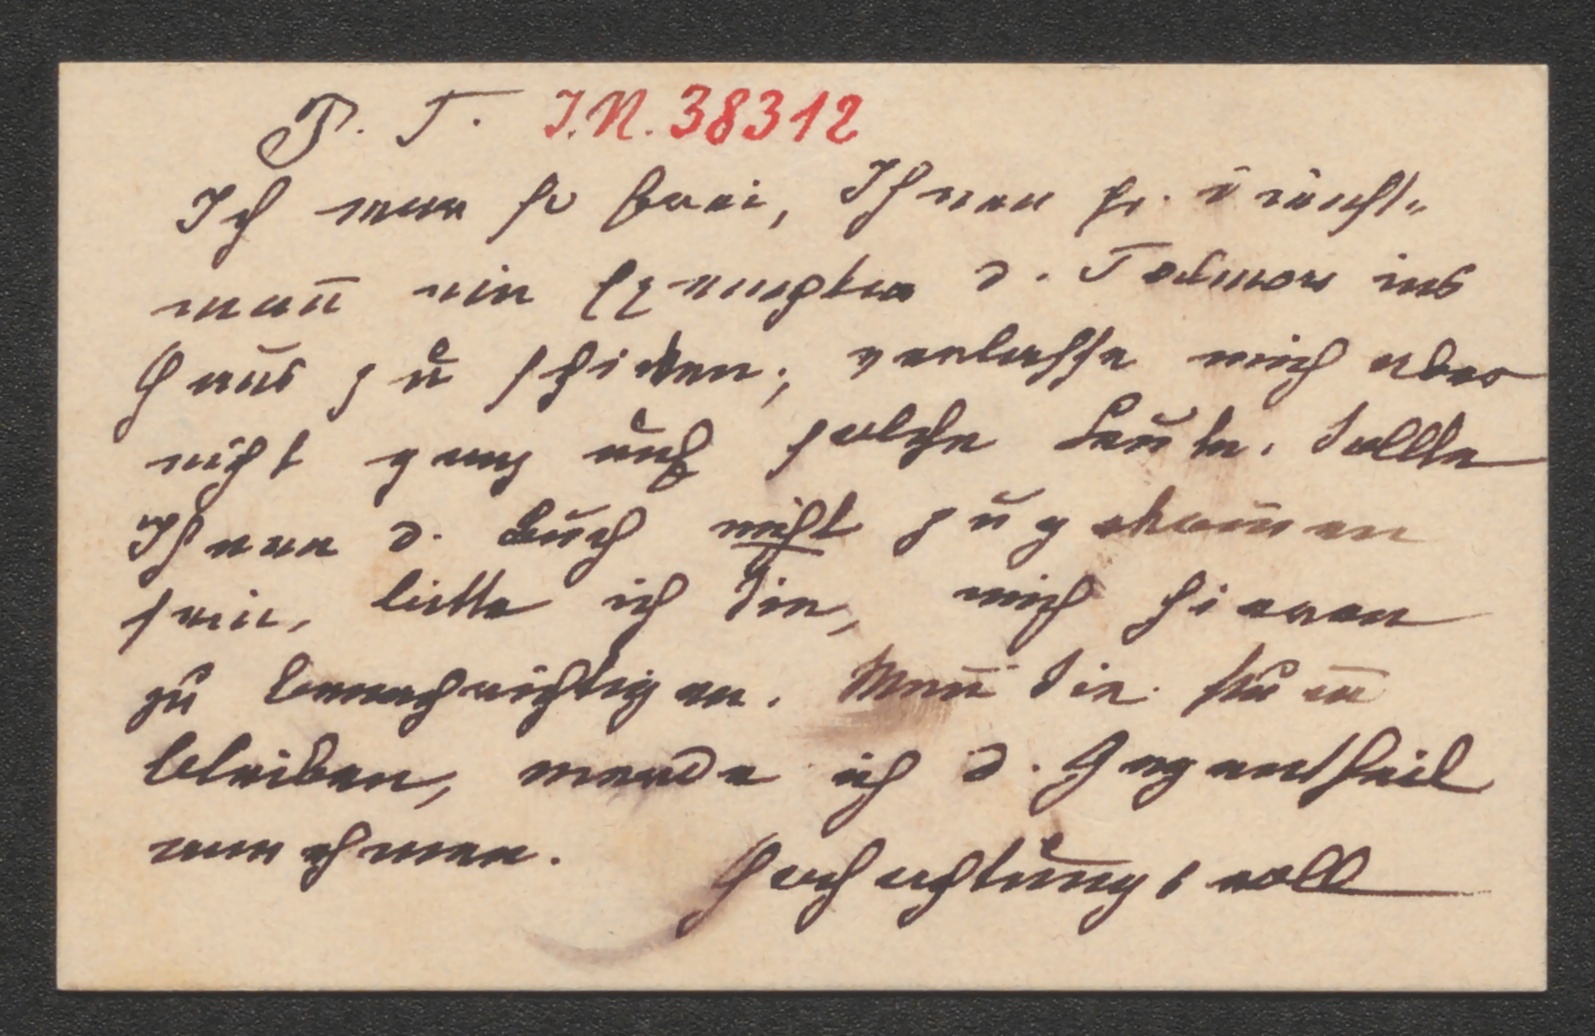 P. T. I.N. 38312
Ich war so frei, Ihnen pr. Dienst-
mann ein Exemplar d. Tadmor ins
Haus zu schicken; verlasse mich aber
nicht ganz auf solche Leute. Sollte
Ihnen d. Buch nicht zugekom̄en
sein, bitte ich Sie, mich hievon
zu benachrichtigen. Wen̄ Sie stum̄
bleiben, werde ich d. Gegentheil
annehmen.
Hochachtungsvoll